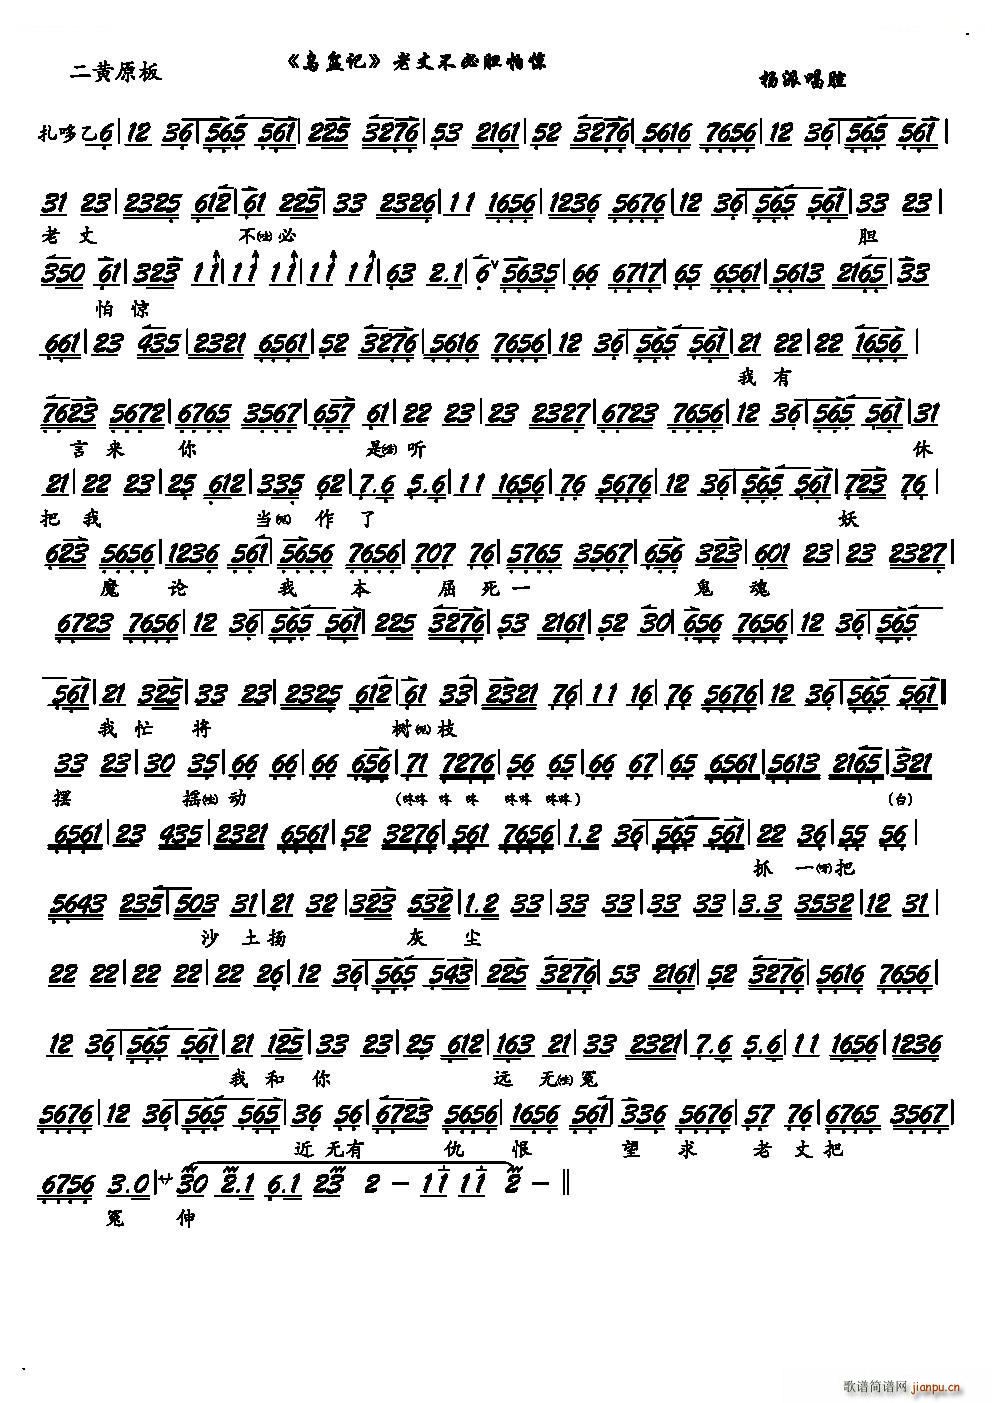 《乌盆记》老丈不必胆怕惊
二黄原板
杨派唱腔
扎哆乙6|12 36|565 561|225 3276|53 2161|52 3276|5616 7656|12 36|565 561|
31 23|2325 612|61 225|33 2326|11 1656|1236 5676|12 36|565 561|33 23|
老丈 不(哇)必 胆
350 61|323 11|11 11|11 11|63 2.1|6 5635|66 6717|65 6561|5613 2165|33
怕惊
661|23 435|2321 6561|52 3276|5616 7656|12 36|565 561|21 22|22 1656|
我有
7623 5672|6765 3567|657 61|22 23|23 2327|6723 7656|12 36|565 561|31
言来你 是(哇)听 休
21|22 23|25 612|335 62|7.6 5.6|11 1656|76 5676|12 36|565 561|723 76|
把我 当 作了 妖
623 5656|1236 561|5656 7656|707 76|5765 3567|656 323|601 23|23 2327|
魔论 我本屈死一 鬼魂
6723 7656|12 36|565 561|225 3276|53 2161|52 30|656 7656|12 36|565
561|21 325|33 23|2325 612|61 33|2321 76|11 16|76 5676|12 36|565 561|
我忙将 树 枝
33 23|30 35|66 66|66 656|71 7276|56 65|66 67|65 6561|5613 2165|321
摆 摇(哇)动 (咚咚 咚 咚 咚咚 咚咚) (白)
6561|23 435|2321 6561|52 3276|561 7656|1.2 36|565 561|22 36|55 56|
抓一 把
5643 235|503 31|21 32|323 532|1.2 33|33 33|33 33|3.3 3532|12 31|
沙土扬 灰尘
22 22|22 22|22 26|12 36|565 543|225 3276|53 2161|52 3276|5616 7656|
12 36|565 561|21 125|33 23|25 612|163 21|33 2321|7.6 5.6|11 1656|1236
我和你 远无(哇)冤
5676|12 36|565 565|36 56|6723 5656|1656 561|336 5676|57 76|6765 3567|
近无有 仇恨 望求 老丈把
6756 3.0|サ30 2.1 6.1 23 2 - 11 11 2 - ‖
冤伸
歌谱简谱网 jianpu.cn